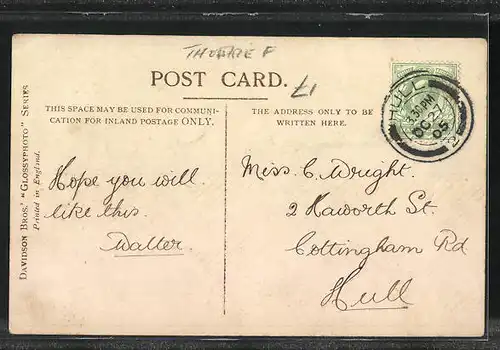 THORPE F
£1
POST CARD.
THIS SPACE MAY BE USED FOR COMMUNI-
CATION FOR INLAND POSTAGE ONLY.
THE ADDRESS ONLY TO BE
WRITTEN HERE.
DAVIDSON BROS.' "GLOSSYPHOTO" SERIES
Printed in England.
HULL
3.30 PM
OC 27
05
2
Hope you will
like this.
Walter.
Miss C. Wright.
2 Haworth St.
Cottingham Rd
Hull